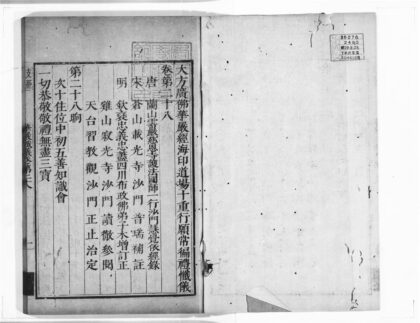 大方廣佛華嚴經海印道場十重行願常徧禮懺儀
卷第二十八
唐 蘭山雲巖慈恩寺護法國師一行沙門慧覺依經錄
宋 蒼山載光寺沙門 普瑞 補註
明 欽褒忠義忠藎四川布政佛弟子木增訂正
雞山寂光寺沙門 讀徹 參閱
天台習教觀沙門 正止 治定
第二十八晌
次十住位中初五善知識會
一切恭敬敬禮無盡三寶